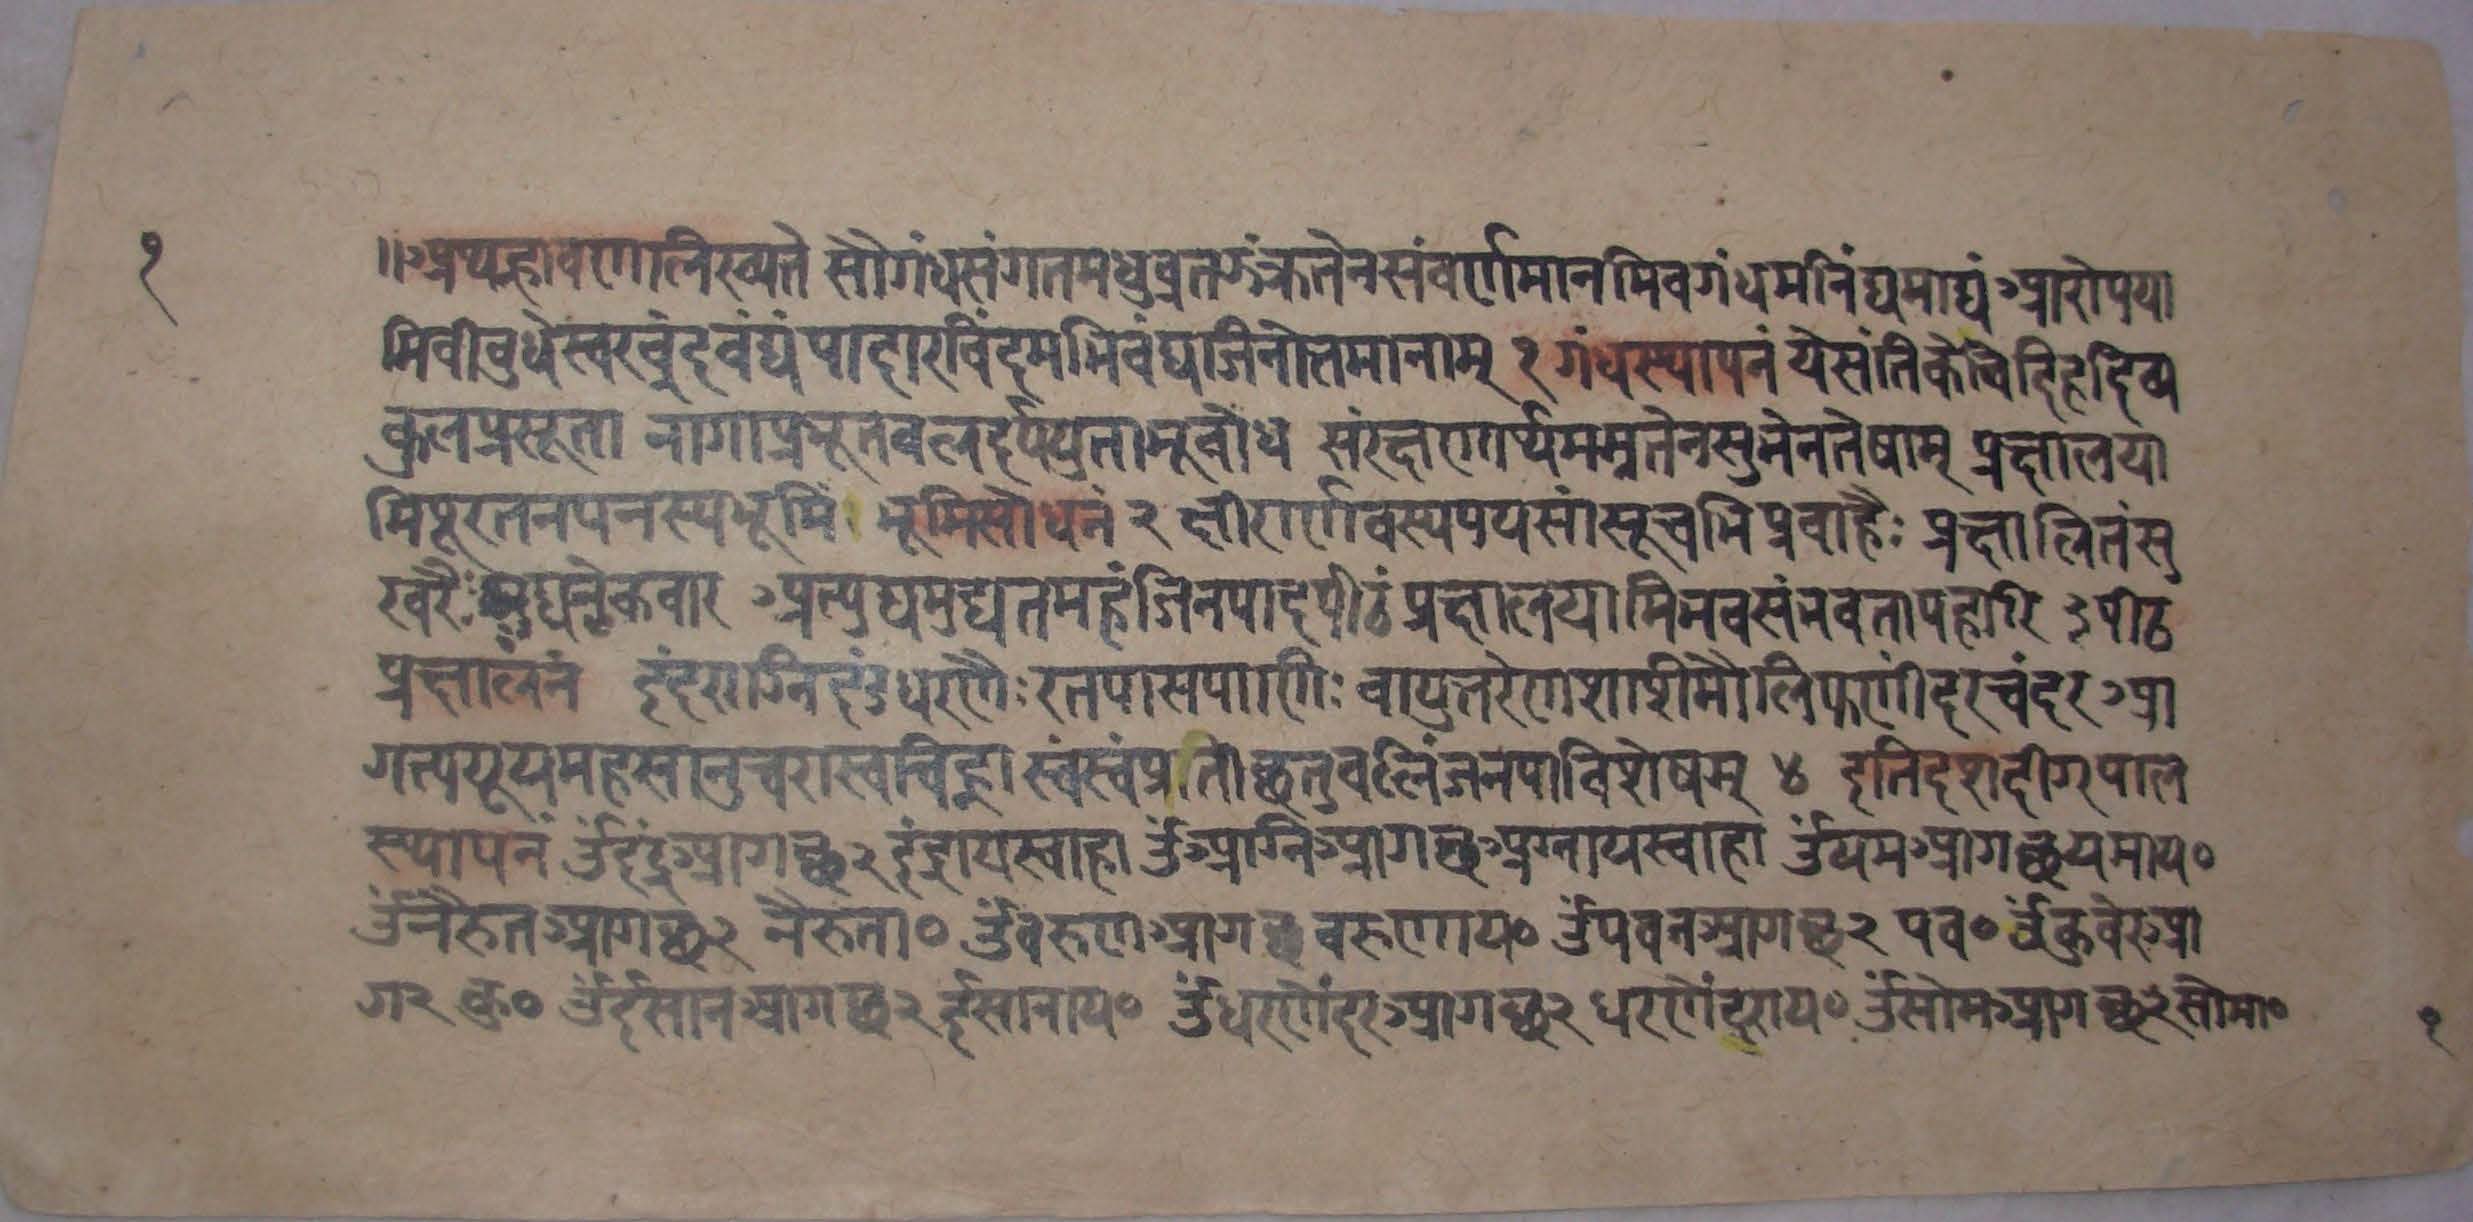 १
॥अथन्हावणलिख्यते सौगंधसंगतमधुव्रतझंकृतेनसंवर्णमानमिवगंधमनिंद्यमाद्यं आरोपया
मिवीवुधेस्वरवृंदवंद्यं पादारविंदमभिवंद्यजिनोत्तमानाम् १ गंधस्थापनं येसंतिकेचिदिहदिव्य
कुलप्रसूता नागाप्रभूतबलदर्पयुताभूबोध संरक्षणार्थममृतेनसुभेनतेषाम् प्रक्षालया
मिपूरतनपनस्यभूमिं । भूमिसोधनं २ क्षीरार्णवस्यपयसांसूचभिप्रवाहैः प्रक्षालितंसु
रवरैः नेकवार अत्युद्यमुद्यतमहंजिनपादपीठं प्रक्षालयामिभवसंभवतापहारि ३ पीठ
प्रक्षालनं इंदराग्निदंडधरणैः रतपासपाणिः वायुत्तरेणशाशिमौलिफणींदरचंदर आ
गत्ययूयमहसानुचरास्वचिह्ना स्वंस्वंप्रतीछतुबलिंजनपाविशेषम् ४ इतिदशदीगपाल
स्थापनं उँइंद्रआगछ२ इंद्रायस्वाहा उँआग्निआगछअग्नायस्वाहा उँयमआगछयमाय०
उँनैरुतआगछ२ नैरुता० उँवरुणआगछ वरुणाय० उँपवनआगछ२ पव० उँकुवेरआ
ग२ कु० उँईसानआगछ२ ईसानाय० उँधरणेंदरआगछ२ धरणेंदराय० उँसोमआगछ२सोमा०
१